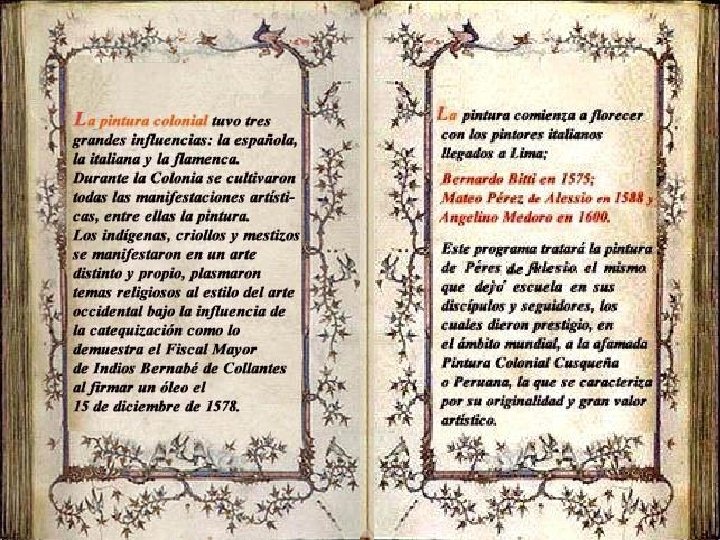 La pintura colonial tuvo tres
grandes influencias: la española,
la italiana y la flamenca.
Durante la Colonia se cultivaron
todas las manifestaciones artísti-
cas, entre ellas la pintura.
Los indígenas, criollos y mestizos
se manifestaron en un arte
distinto y propio, plasmaron
temas religiosos al estilo del arte
occidental bajo la influencia de
la catequización como lo
demuestra el Fiscal Mayor
de Indios Bernabé de Collantes
al firmar un óleo el
15 de diciembre de 1578.
La pintura comienza a florecer
con los pintores italianos
llegados a Lima;
Bernardo Bitti en 1575;
Mateo Pérez de Alessio en 1588 y
Angelino Medoro en 1600.
Este programa tratará la pintura
de Péres de Alesio el mismo
que dejo' escuela en sus
discípulos y seguidores, los
cuales dieron prestigio, en
el ámbito mundial, a la afamada
Pintura Colonial Cusqueña
o Peruana, la que se caracteriza
por su originalidad y gran valor
artístico.